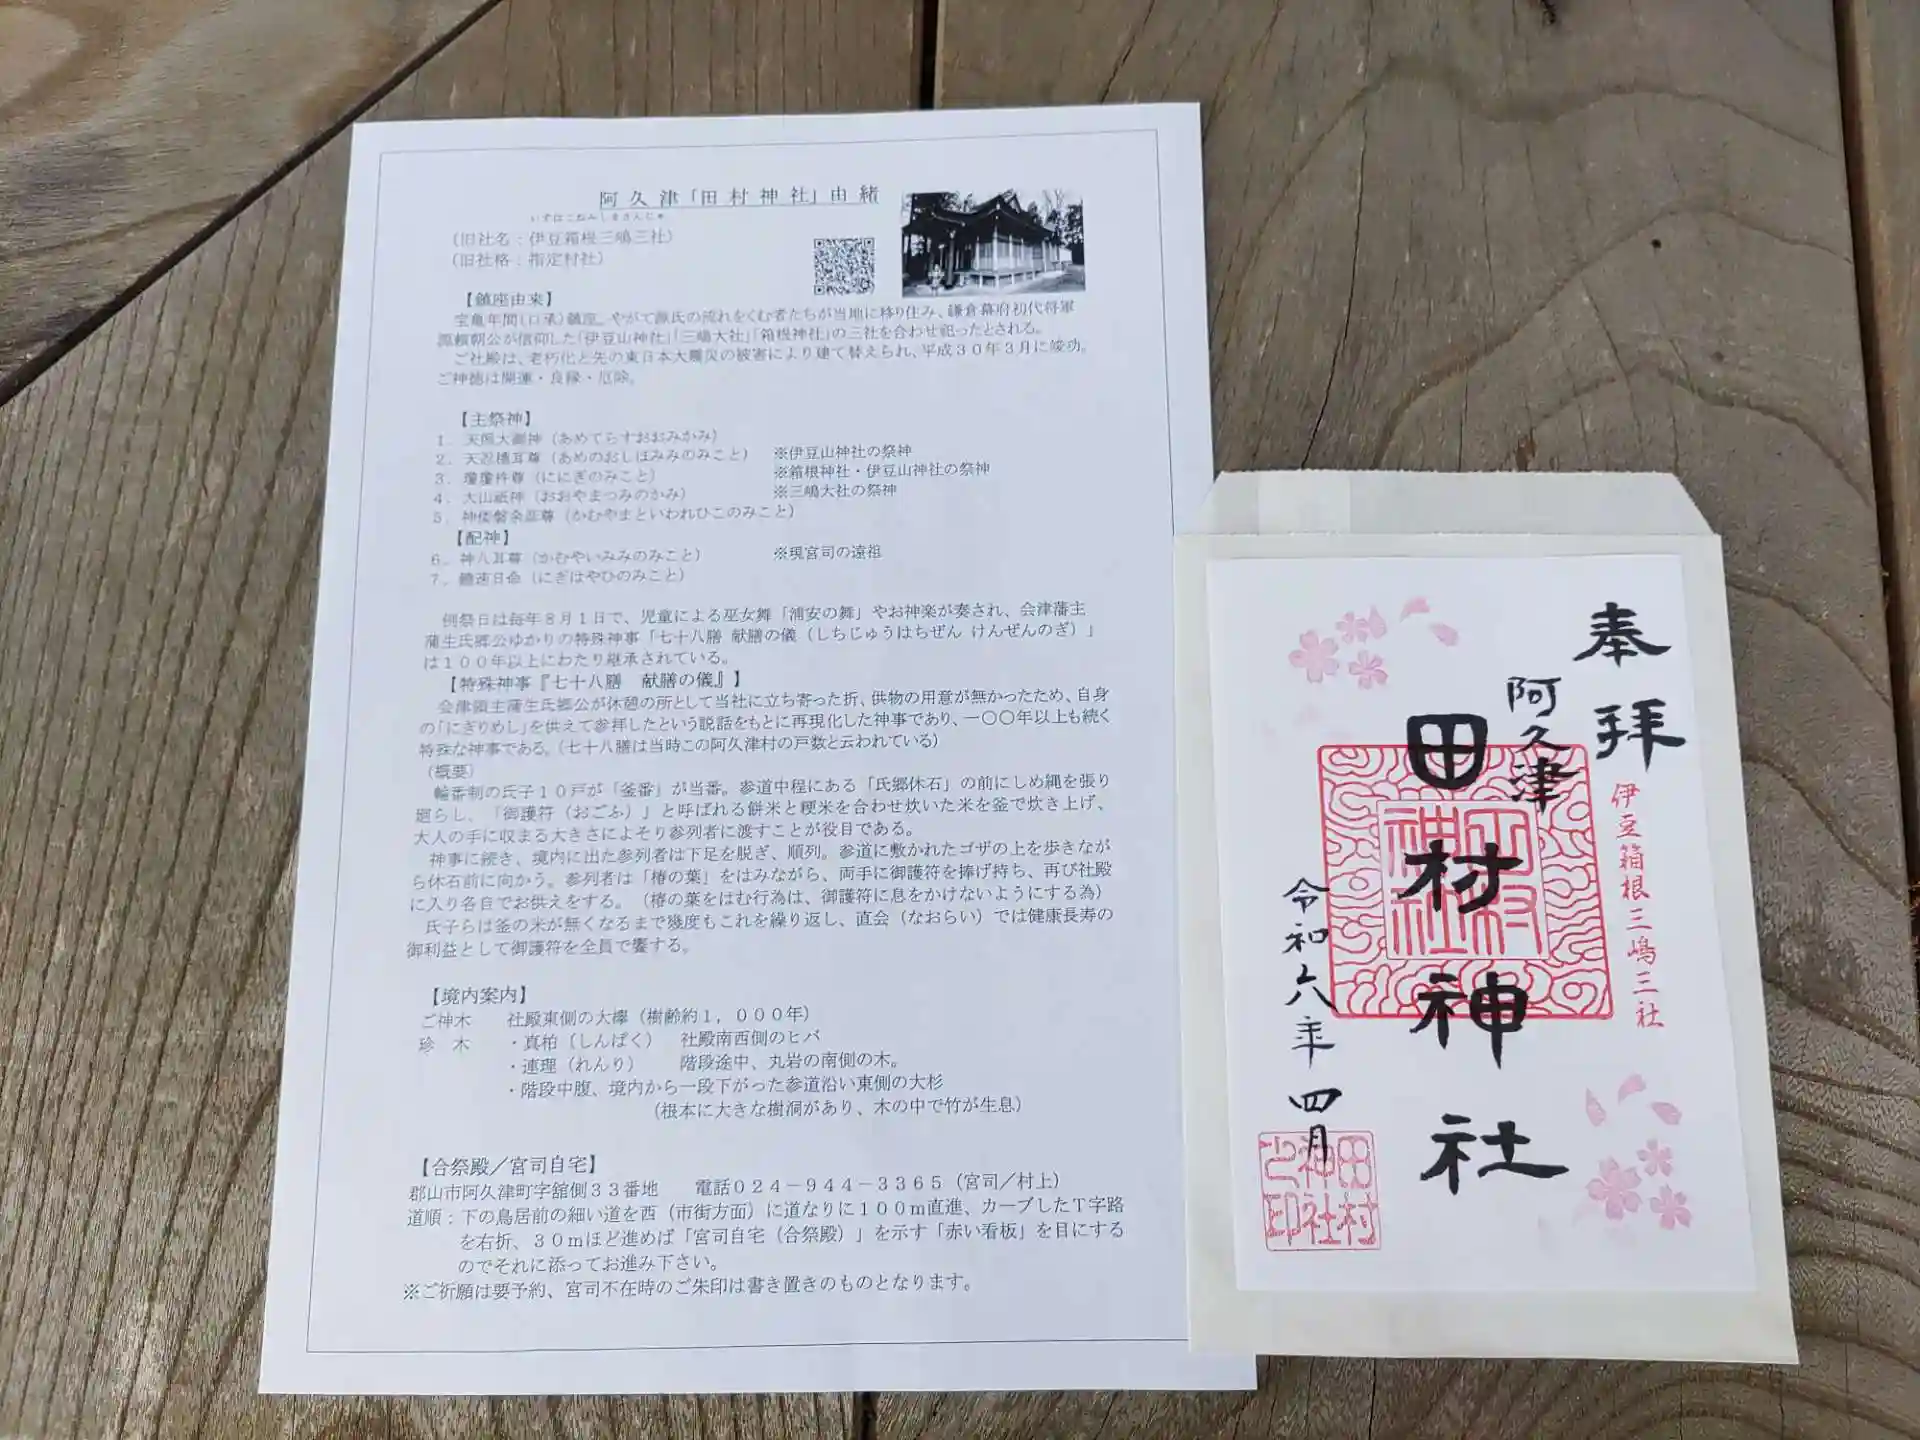 阿久津「田村神社」由緒
いずはこねみしまさんじゃ
（旧社名：伊豆箱根三嶋三社）
（旧社格：指定村社）
【鎮座由来】
宝亀年間（口承）鎮座。やがて源氏の流れをくむ者たちが当地に移り住み、鎌倉幕府初代将軍
源頼朝公が信仰した「伊豆山神社」「三嶋大社」「箱根神社」の三社を合わせ祀ったとされる。
ご社殿は、老朽化と先の東日本大震災の被害により建て替えられ、平成３０年３月に竣功。
ご神徳は開運・良縁・厄除。
【主祭神】
１．天照大御神（あめてらすおおみかみ）
２．天忍穂耳尊（あめのおしほみみのみこと）　※伊豆山神社の祭神
３．瓊瓊杵尊（ににぎのみこと）　※箱根神社・伊豆山神社の祭神
４．大山祇神（おおやまつみのかみ）　※三嶋大社の祭神
５．神倭磐余彦尊（かむやまといわれひこのみこと）
【配神】
６．神八耳尊（かむやいみみのみこと）　※現宮司の遠祖
７．饒速日命（にぎはやひのみこと）
例祭日は毎年８月１日で、児童による巫女舞「浦安の舞」やお神楽が奏され、会津藩主
蒲生氏郷公ゆかりの特殊神事「七十八膳 献膳の儀（しちじゅうはちぜん けんぜんのぎ）」
は１００年以上にわたり継承されている。
【特殊神事『七十八膳　献膳の儀』】
会津領主蒲生氏郷公が休憩の所として当社に立ち寄った折、供物の用意が無かったため、自身
の「にぎりめし」を供えて参拝したという説話をもとに再現化した神事であり、一〇〇年以上も続く
特殊な神事である。（七十八膳は当時この阿久津村の戸数と云われている）
（概要）
輪番制の氏子１０戸が「釜番」が当番。参道中程にある「氏郷休石」の前にしめ縄を張り
廻らし、「御護符（おごふ）」と呼ばれる餅米と粳米を合わせ炊いた米を釜で炊き上げ、
大人の手に収まる大きさによそり参列者に渡すことが役目である。
神事に続き、境内に出た参列者は下足を脱ぎ、順列。参道に敷かれたゴザの上を歩きなが
ら休石前に向かう。参列者は「椿の葉」をはみながら、両手に御護符を捧げ持ち、再び社殿
に入り各自でお供えをする。（椿の葉をはむ行為は、御護符に息をかけないようにする為）
氏子らは釜の米が無くなるまで幾度もこれを繰り返し、直会（なおらい）では健康長寿の
御利益として御護符を全員で饗する。
【境内案内】
ご神木　社殿東側の大欅（樹齢約１，０００年）
珍　木　・真柏（しんぱく）　社殿南西側のヒバ
・連理（れんり）　階段途中、丸岩の南側の木。
・階段中腹、境内から一段下がった参道沿い東側の大杉
（根本に大きな樹洞があり、木の中で竹が生息）
【合祭殿／宮司自宅】
郡山市阿久津町字舘側３３番地　電話０２４－９４４－３３６５（宮司／村上）
道順：下の鳥居前の細い道を西（市街方面）に道なりに１００ｍ直進、カーブしたＴ字路
を右折、３０ｍほど進めば「宮司自宅（合祭殿）」を示す「赤い看板」を目にする
のでそれに添ってお進み下さい。
※ご祈願は要予約、宮司不在時のご朱印は書き置きのものとなります。
奉拝
伊豆箱根三嶋三社
阿久津
田村神社
田村神社
令和六年四月
田村神社之印